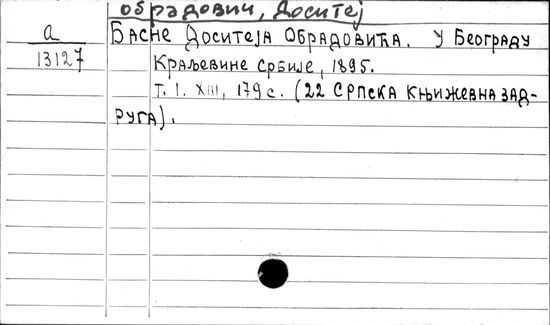 Обрадовић, Доситеј
а
Басне Доситеја Обрадовића. У Београду
13127
Краљевине Србије, 1895.
Т. I. XIII, 179 с. (22 Српска књижевна зад-
руга).